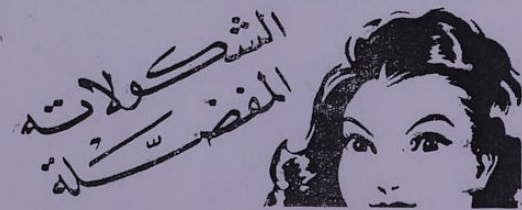 الشكولاته
المفضّلة